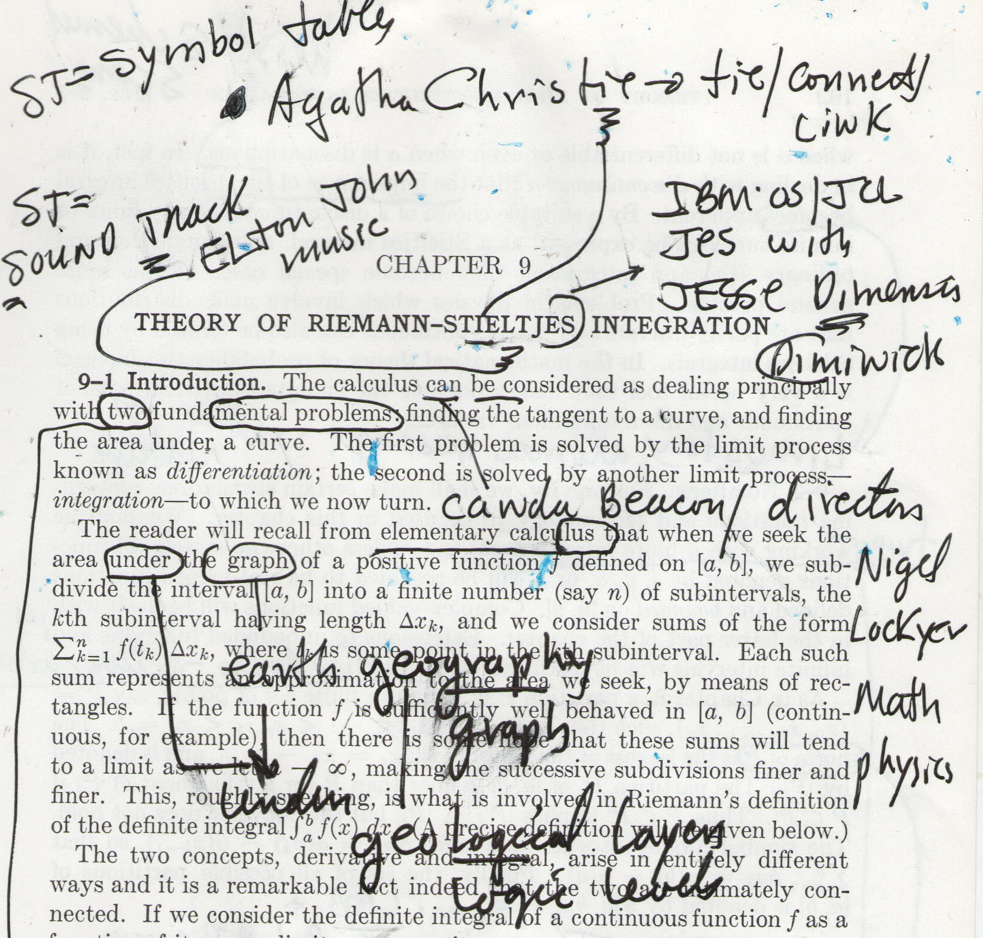 ST= Symbol table
Agatha Christie → tie/connect/
Link
ST=
SOUND Track
Elton John
music
IBM OS/JCL
JES with
JESSE Dimensis
Dimiwick
CHAPTER 9
THEORY OF RIEMANN–STIELTJES INTEGRATION
9–1 Introduction. The calculus can be considered as dealing principally
with two fundamental problems; finding the tangent to a curve, and finding
the area under a curve. The first problem is solved by the limit process
known as differentiation; the second is solved by another limit process—
integration—to which we now turn.
Canada Beacon/directors
The reader will recall from elementary calculus that when we seek the
area under the graph of a positive function f defined on [a, b], we sub-
divide the interval [a, b] into a finite number (say n) of subintervals, the
kth subinterval having length Δxₖ, and we consider sums of the form
∑ⁿₖ₌₁ f(tₖ) Δxₖ, where tₖ is some point in the kth subinterval. Each such
sum represents an approximation to the area we seek, by means of rec-
tangles. If the function f is sufficiently well behaved in [a, b] (contin-
uous, for example), then there is some hope that these sums will tend
to a limit as we let n → ∞, making the successive subdivisions finer and
finer. This, roughly speaking, is what is involved in Riemann's definition
of the definite integral ∫ᵇₐ f(x) dx. (A precise definition will be given below.)
The two concepts, derivative and integral, arise in entirely different
ways and it is a remarkable fact indeed that the two are intimately con-
nected. If we consider the definite integral of a continuous function f as a
Nigel
Lockyer
Math
physics
earth geography
graph
geological layers
logic levels